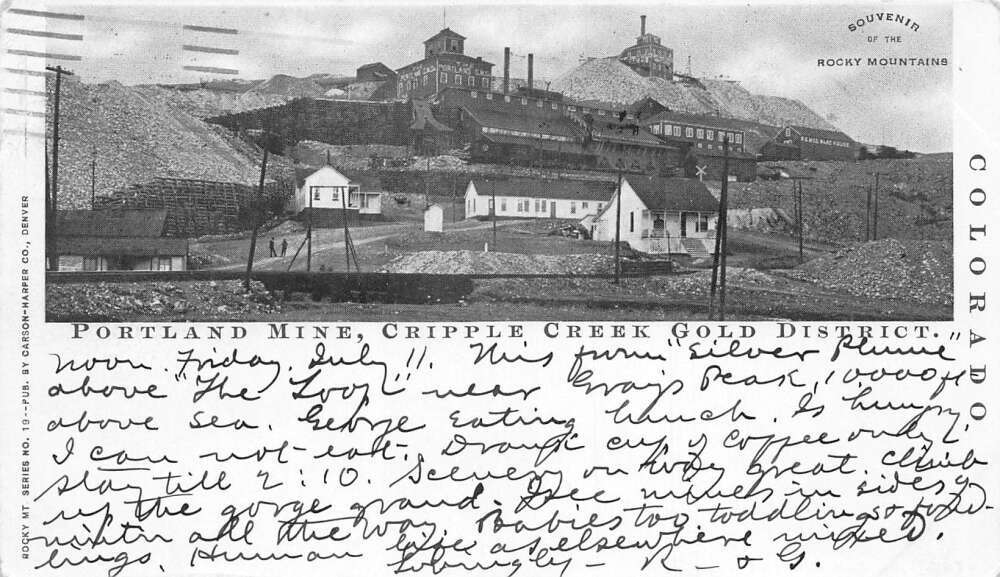 SOUVENIR
OF THE
ROCKY MOUNTAINS
PORTLAND GOLD
COLORADO
ROCKY MT. SERIES NO. 19--PUB. BY CARSON-HARPER CO., DENVER
PORTLAND MINE, CRIPPLE CREEK GOLD DISTRICT.
Noon. Friday, July 11. This from "Silver Plume"
above "The Loop" near Grays Peak, 10000 ft
above sea. George Eating lunch. Is hungry.
I can not eat. Drank cup of coffee only.
Stay till 2:10. Scenery on way great. Climb
up the gorge grand. I see mines in sides of
mintn all the way. Babies too toddlings &
lings. Human life as elsewhere mixed.
Lovingly - R - & G.